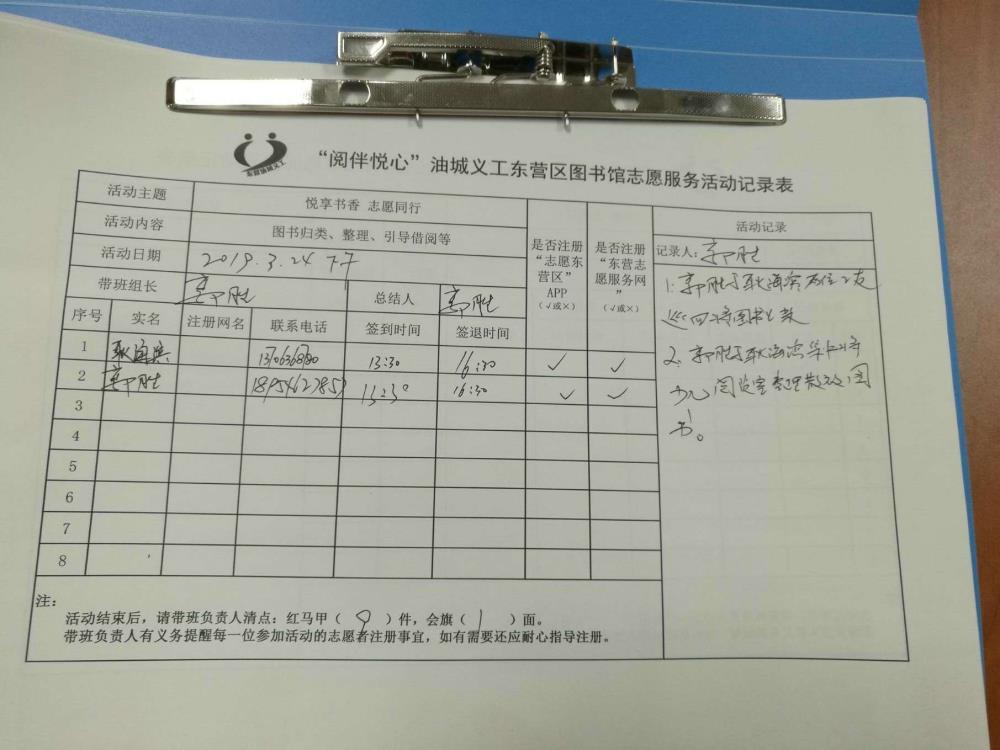 东营油城义工
“阅伴悦心”油城义工东营区图书馆志愿服务活动记录表
活动主题 悦享书香 志愿同行
活动内容 图书归类、整理、引导借阅等
活动日期 2019.3.24 下午
带班组长 郭胜 总结人 郭胜
是否注册“志愿东营区”APP（√或×）
是否注册“东营志愿服务网”（√或×）
序号 实名 注册网名 联系电话 签到时间 签退时间
1 13:30 16:30 √ √
2 郭胜 18954627857 16:30 √ √
3
4
5
6
7
8
活动记录
记录人：郭胜
1. 郭胜
2. 郭胜
书。
注：
活动结束后，请带班负责人清点：红马甲（ 9 ）件，会旗（ 1 ）面。
带班负责人有义务提醒每一位参加活动的志愿者注册事宜，如有需要还应耐心指导注册。